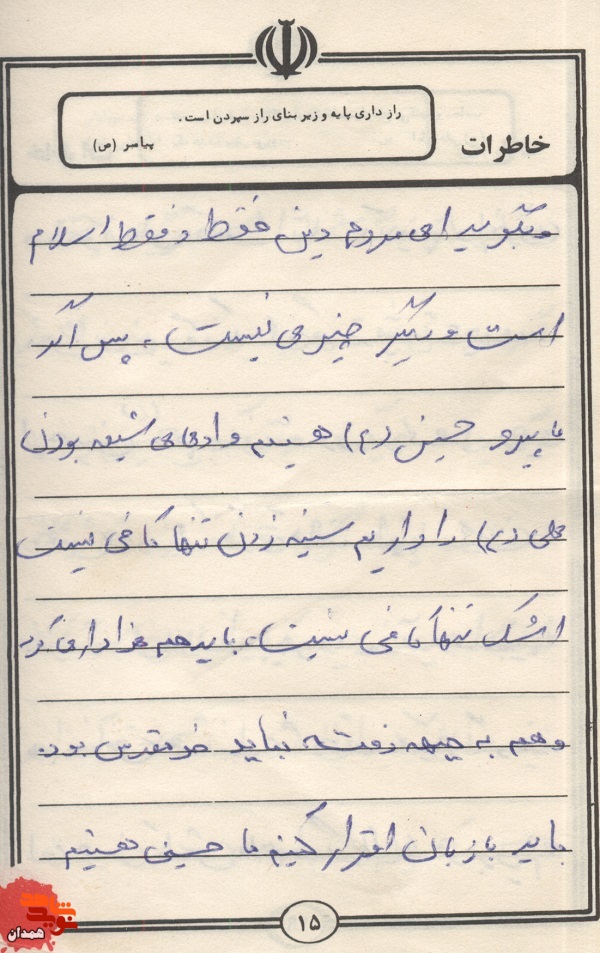 رازداری پایه و زیر بنای راز سپردن است.
پیامبر (ص)
خاطرات
و بگوئید ای مردم دین فقط و فقط اسلام
است و دیگر چیزی نیست، پس اگر
ما پیرو حسین (ع) هستیم و ادعای شیعه بودن
علی (ع) را داریم سینه زدن تنها کافی نیست
اشک تنها کافی نیست، باید هم عزاداری کرد
و هم به جبهه رفت، نباید خر مقدس بود.
باید با زبان اقرار کنیم ما حسینی هستیم
۱۵
نوید
همدان